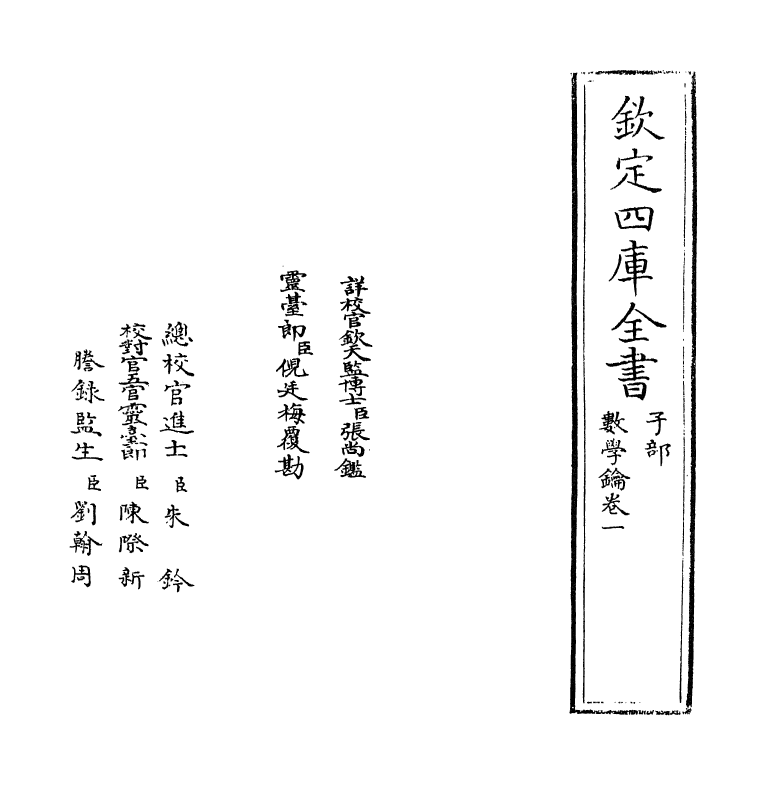 欽定四庫全書
子部
數學鑰卷一
詳校官欽天監博士臣張尚鑑
靈臺郎臣倪廷梅覆勘
總校官進士臣朱鈐
校對官五官靈臺郎臣陳際新
謄録監生臣劉翰周